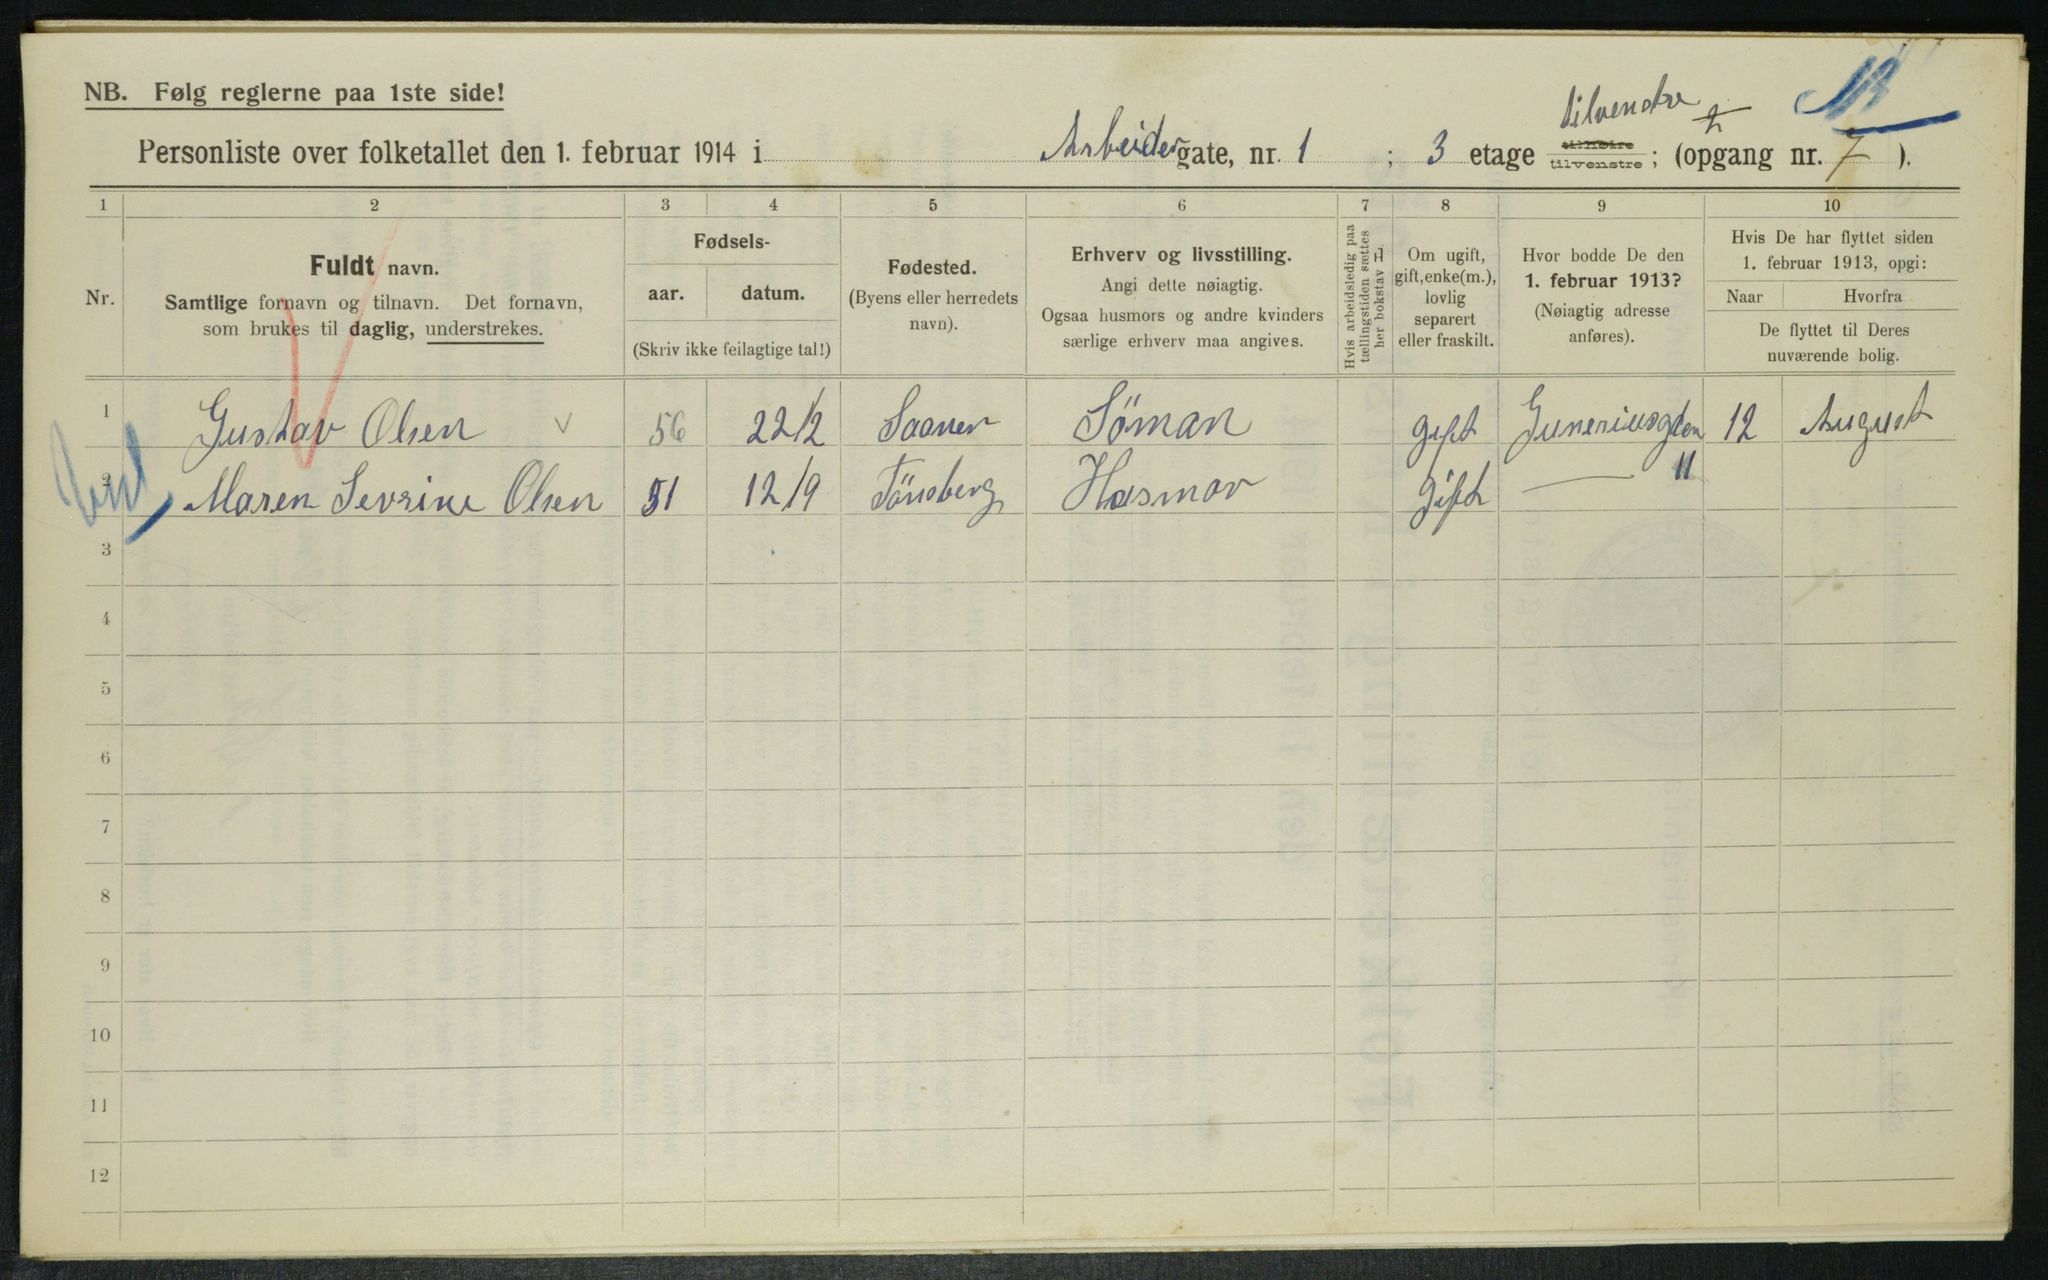 NB. Følg reglerne paa 1ste side!
tilvenstre
Personliste over folketallet den 1. februar 1914 i Arbeidergate, nr. 1 ; 3 etage tilhøire tilvenstre ; (opgang nr. 7 ).
1 2 3 4 5 6 7 8 9 10
Nr.
Fuldt navn.
Samtlige fornavn og tilnavn. Det fornavn,
som brukes til daglig, understrekes.
Fødsels-
aar. datum.
(Skriv ikke feilagtige tal!)
Fødested.
(Byens eller herredets
navn).
Erhverv og livsstilling.
Angi dette nøiagtig.
Ogsaa husmors og andre kvinders
særlige erhverv maa angives.
Hvis arbeidsledig paa
tællingstiden sættes
her bokstav L
Om ugift,
gift, enke(m.),
lovlig
separert
eller fraskilt.
Hvor bodde De den
1. februar 1913?
(Nøiagtig adresse
anføres).
Hvis De har flyttet siden
1. februar 1913, opgi:
Naar Hvorfra
De flyttet til Deres
nuværende bolig.
1 Gustav Olsen 56 22/2 Søman gift 12 August
2 Maren Sevrine Olsen 51 12/9 Tönsberg Husmor gift — 11
3
4
5
6
7
8
9
10
11
12